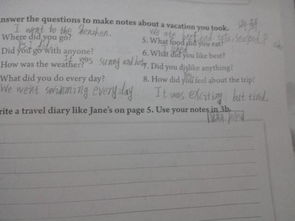 nswer the questions to make notes about a vacation you took.
I went to the beachen.
Where did you go?
5. What food did you eat?
we ate
Did you go with anyone?
6. What did you like best?
How was the weather?
It was sunny and hot,
7. Did you dislike anything?
What did you do every day?
8. How did you feel about the trip?
We went swimming every day
It was exciting but tired.
rite a travel diary like Jane's on page 5. Use your notes in 3b.